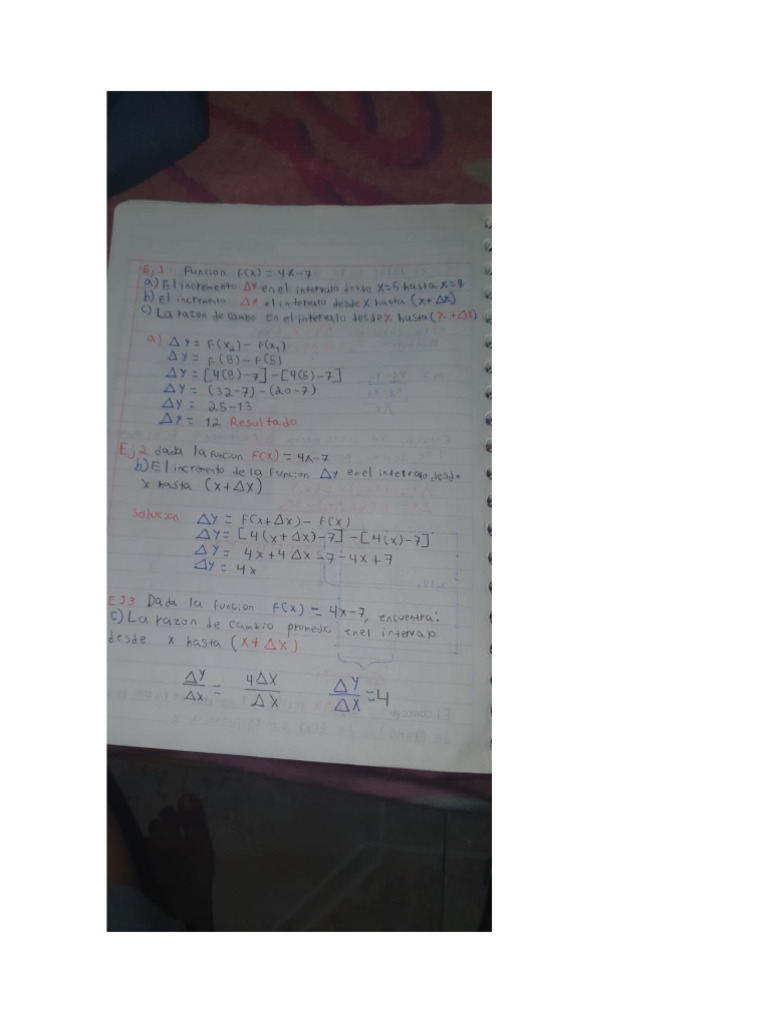 Ej 1 Funcion F(x) = 4x-7
a) El incremento Δy en el intervalo desde x=5 hasta x=8
b) El incremento Δy el intervalo desde x hasta (x+Δx)
c) La razon de cambo en el intervalo desde x hasta (x+Δx)
a) Δy = F(x₂) - F(x₁)
Δy = F(8) - F(5)
Δy = [4(8)-7] - [4(5)-7]
Δy = (32-7) - (20-7)
Δy = 25-13
Δy = 12 Resultado
Ej 2 dada la funcion F(x) = 4x-7
b) El incremento de la funcion Δy en el intervalo desde
x hasta (x+Δx)
Solucion Δy = F(x+Δx) - F(x)
Δy = [4(x+Δx)-7] - [4(x)-7]
Δy = 4x+4Δx-7-4x+7
Δy = 4x
EJ3 Dada la funcion F(x) = 4x-7, encuentra:
c) La razon de cambio promedio en el intervalo
desde x hasta (x+Δx)
Δy/Δx = 4Δx/Δx Δy/Δx = 4